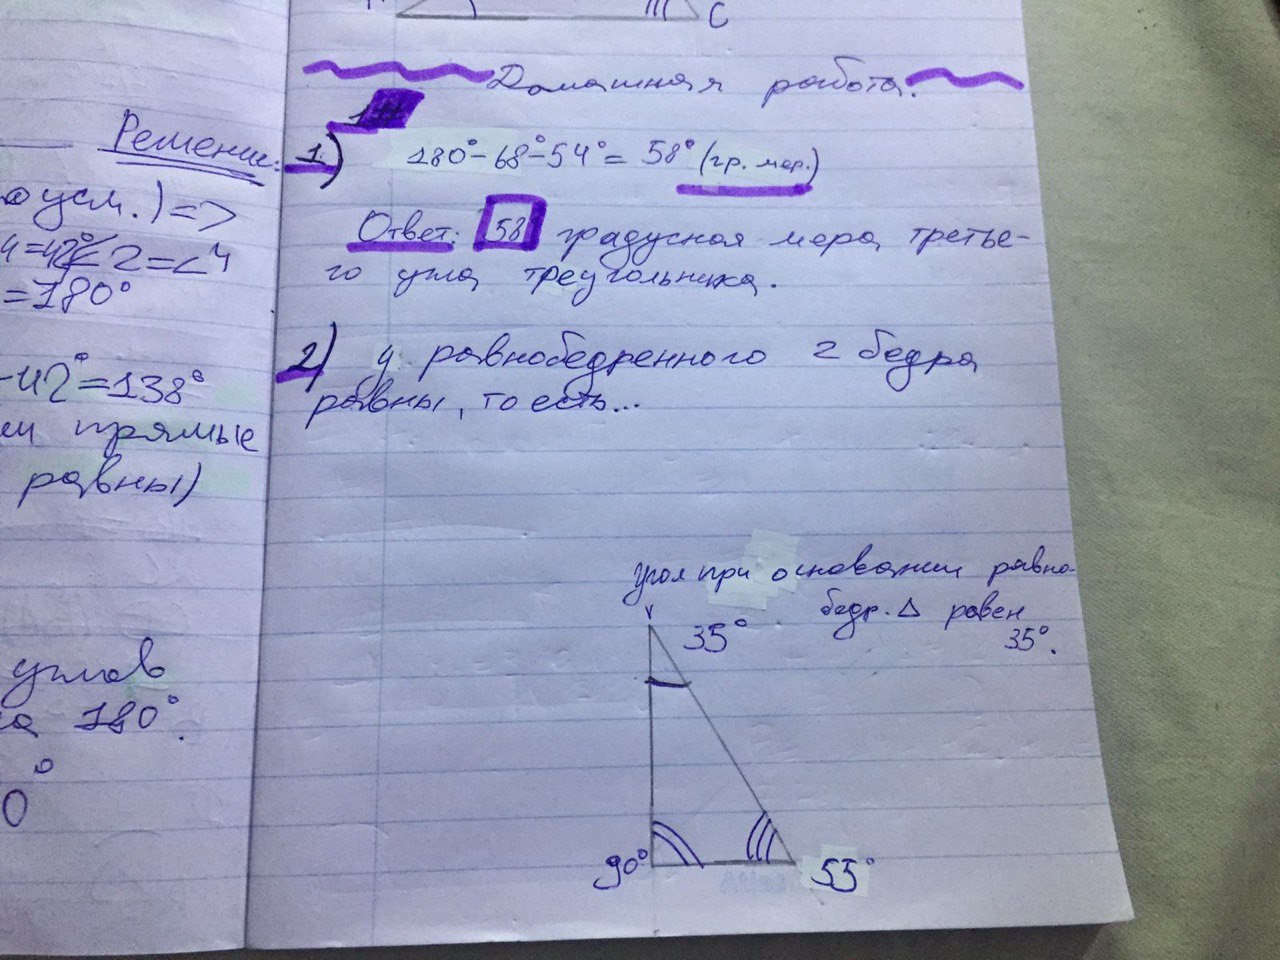 Решение:
о усм.) =>
4=42° <2=<4
=180°
-42°=138°
ми прямые
равны)
углов
на 180°.
0°
C
Домашная работа.
1) 180°-68°-54°= 58° (гр. мер.)
Ответ: 58 градусная мера третье-
го угла треугольника.
2) у равнобедренного 2 бедра
равны, то есть...
Угол при основании равно-
бедр. Δ равен
35°.
35°
90°
55°